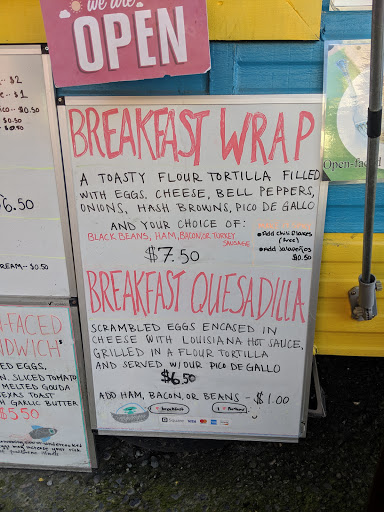 we are
OPEN
$2
$0.50
$0.50
$0.50
6.50
REAM-- $0.50
BREAKFAST WRAP
A TOASTY FLOUR TORTILLA FILLED
WITH EGGS, CHEESE, BELL PEPPERS,
ONIONS, HASH BROWNS, PICO DE GALLO
AND YOUR CHOICE OF:
BLACK BEANS, HAM, BACON, OR TURKEY
SAUSAGE
$7.50
Add Chili Flakes
(free)
Add Jalapeños
$0.50
BREAKFAST QUESADILLA
SCRAMBLED EGGS ENCASED IN
CHEESE WITH LOUISIANA HOT SAUCE,
GRILLED IN A FLOUR TORTILLA
AND SERVED W/OUR PICO DE GALLO
$6.50
ADD HAM, BACON, OR BEANS - $1.00
I ♥ breakfast
-FACED
NDWICH
ED EGGS,
SLICED TOMATO
MELTED GOUDA
EXAS TOAST
H GARLIC BUTTER
$5.50
Open-fa